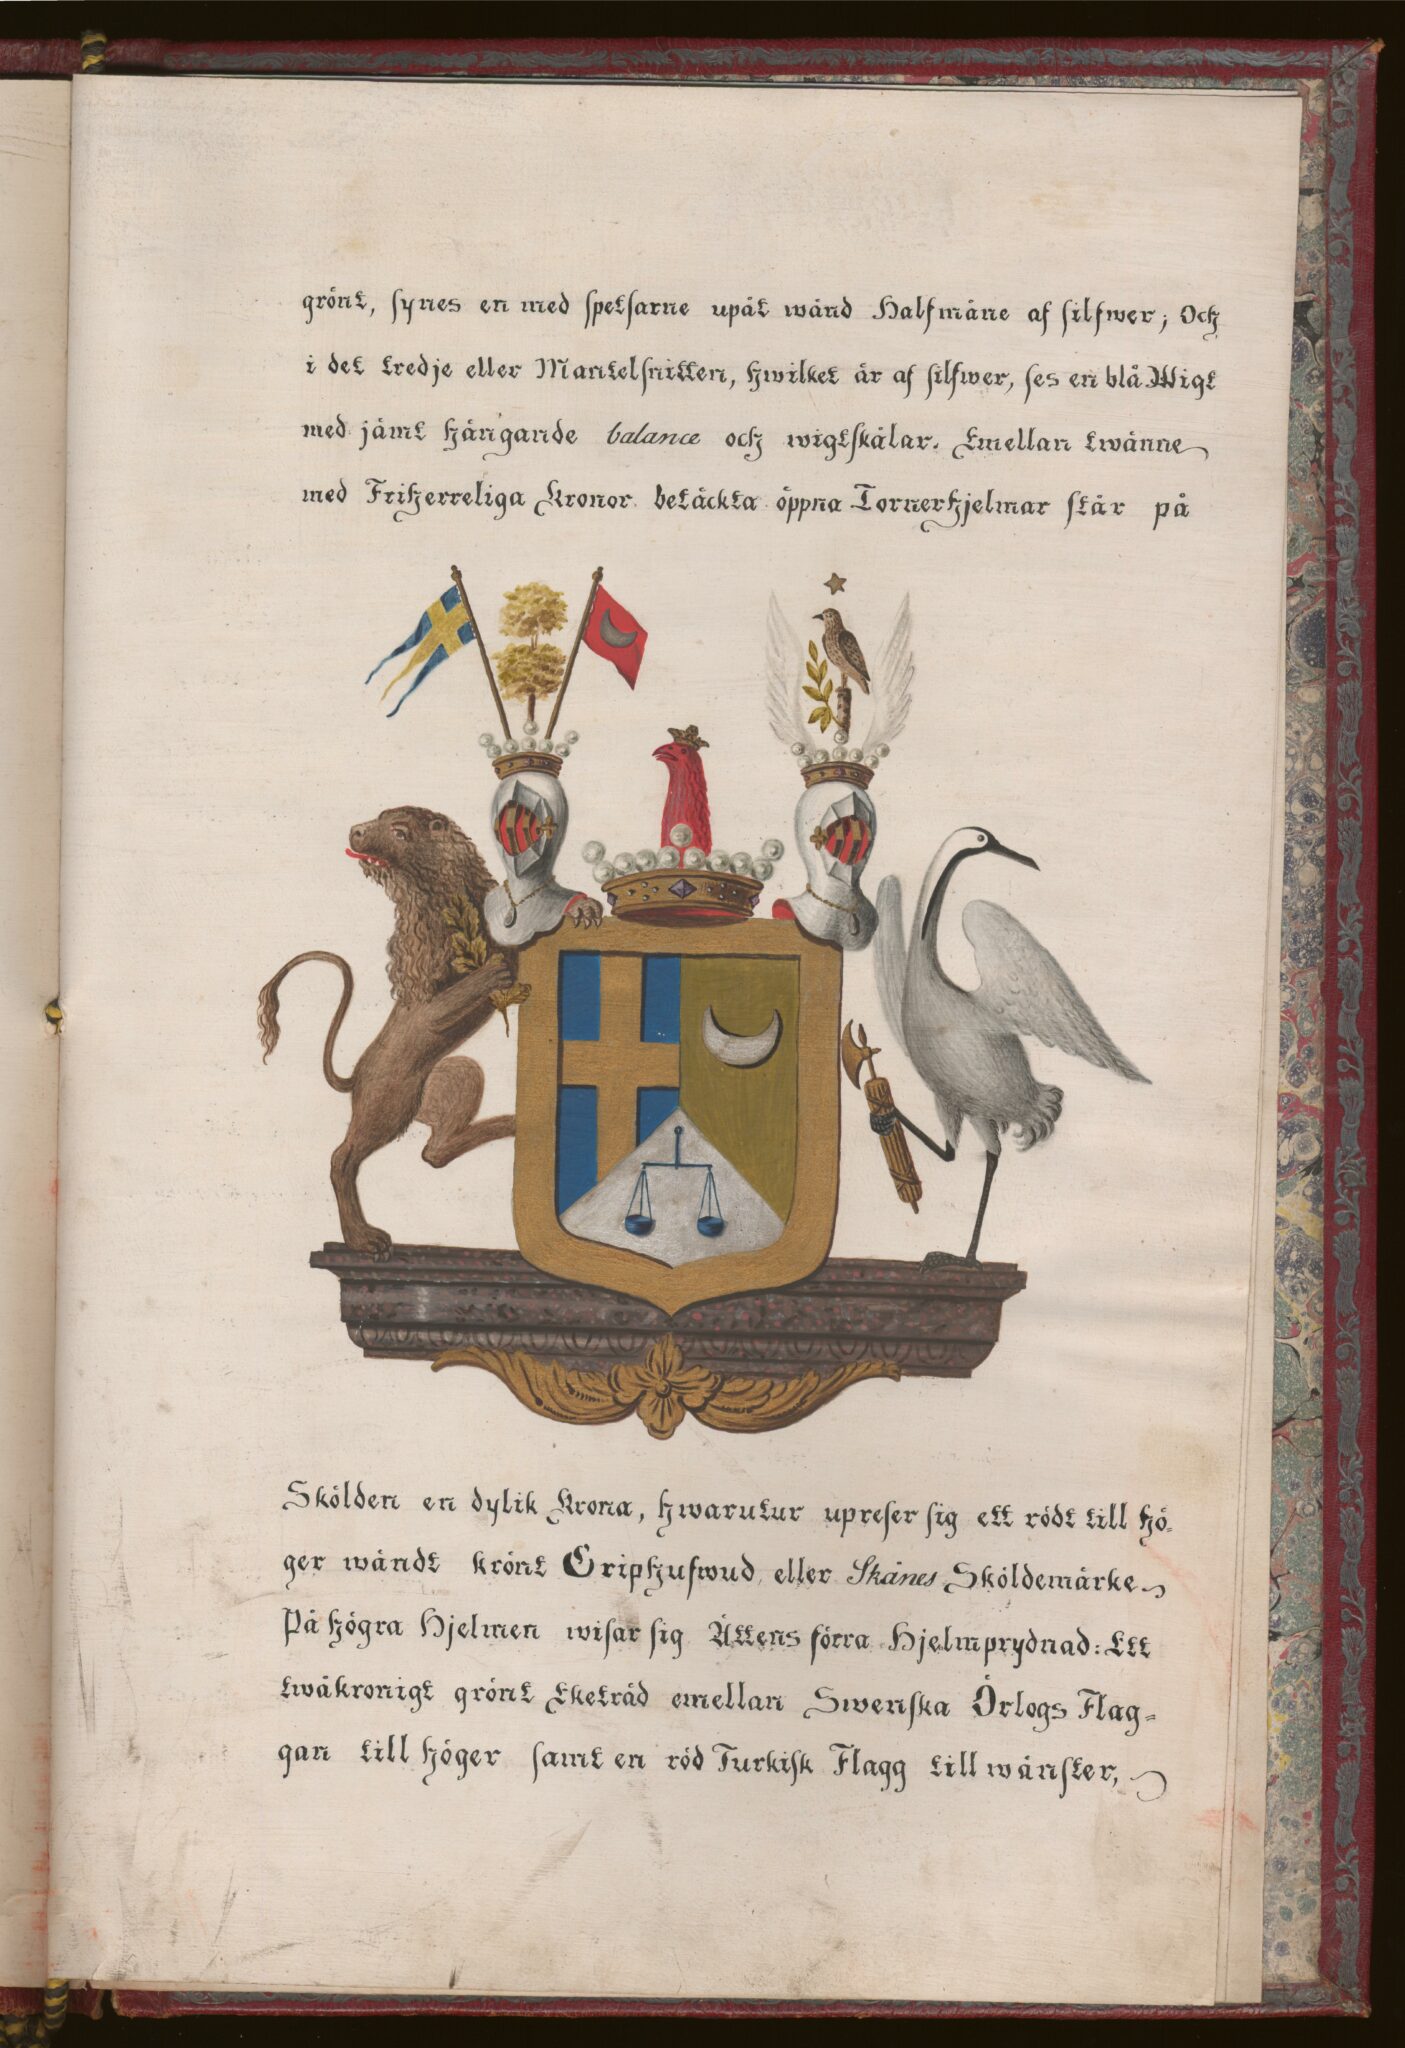 grönt, synes en med spetsarne upåt wänd Halfmåne af silfwer; Och
i det tredje eller Mantelsnitten, hwilket är af silfwer, ses en blå Wigt
med jämt hängande balance och wigtskålar. Emellan twänne
med Friherreliga Kronor betäckta öppna Tornerhjelmar står på
Skölden en dylik Krona, hwarutur upreser sig ett rödt till hö-
ger wändt krönt Griphufwud eller Skånes Sköldemärke
På högra Hjelmen wisar sig Ättens förra Hjelmprydnad: Ett
twåkronigt grönt Eketräd emellan Swenska Örlogs Flag-
gan till höger samt en röd Turkisk Flagg till wänster,